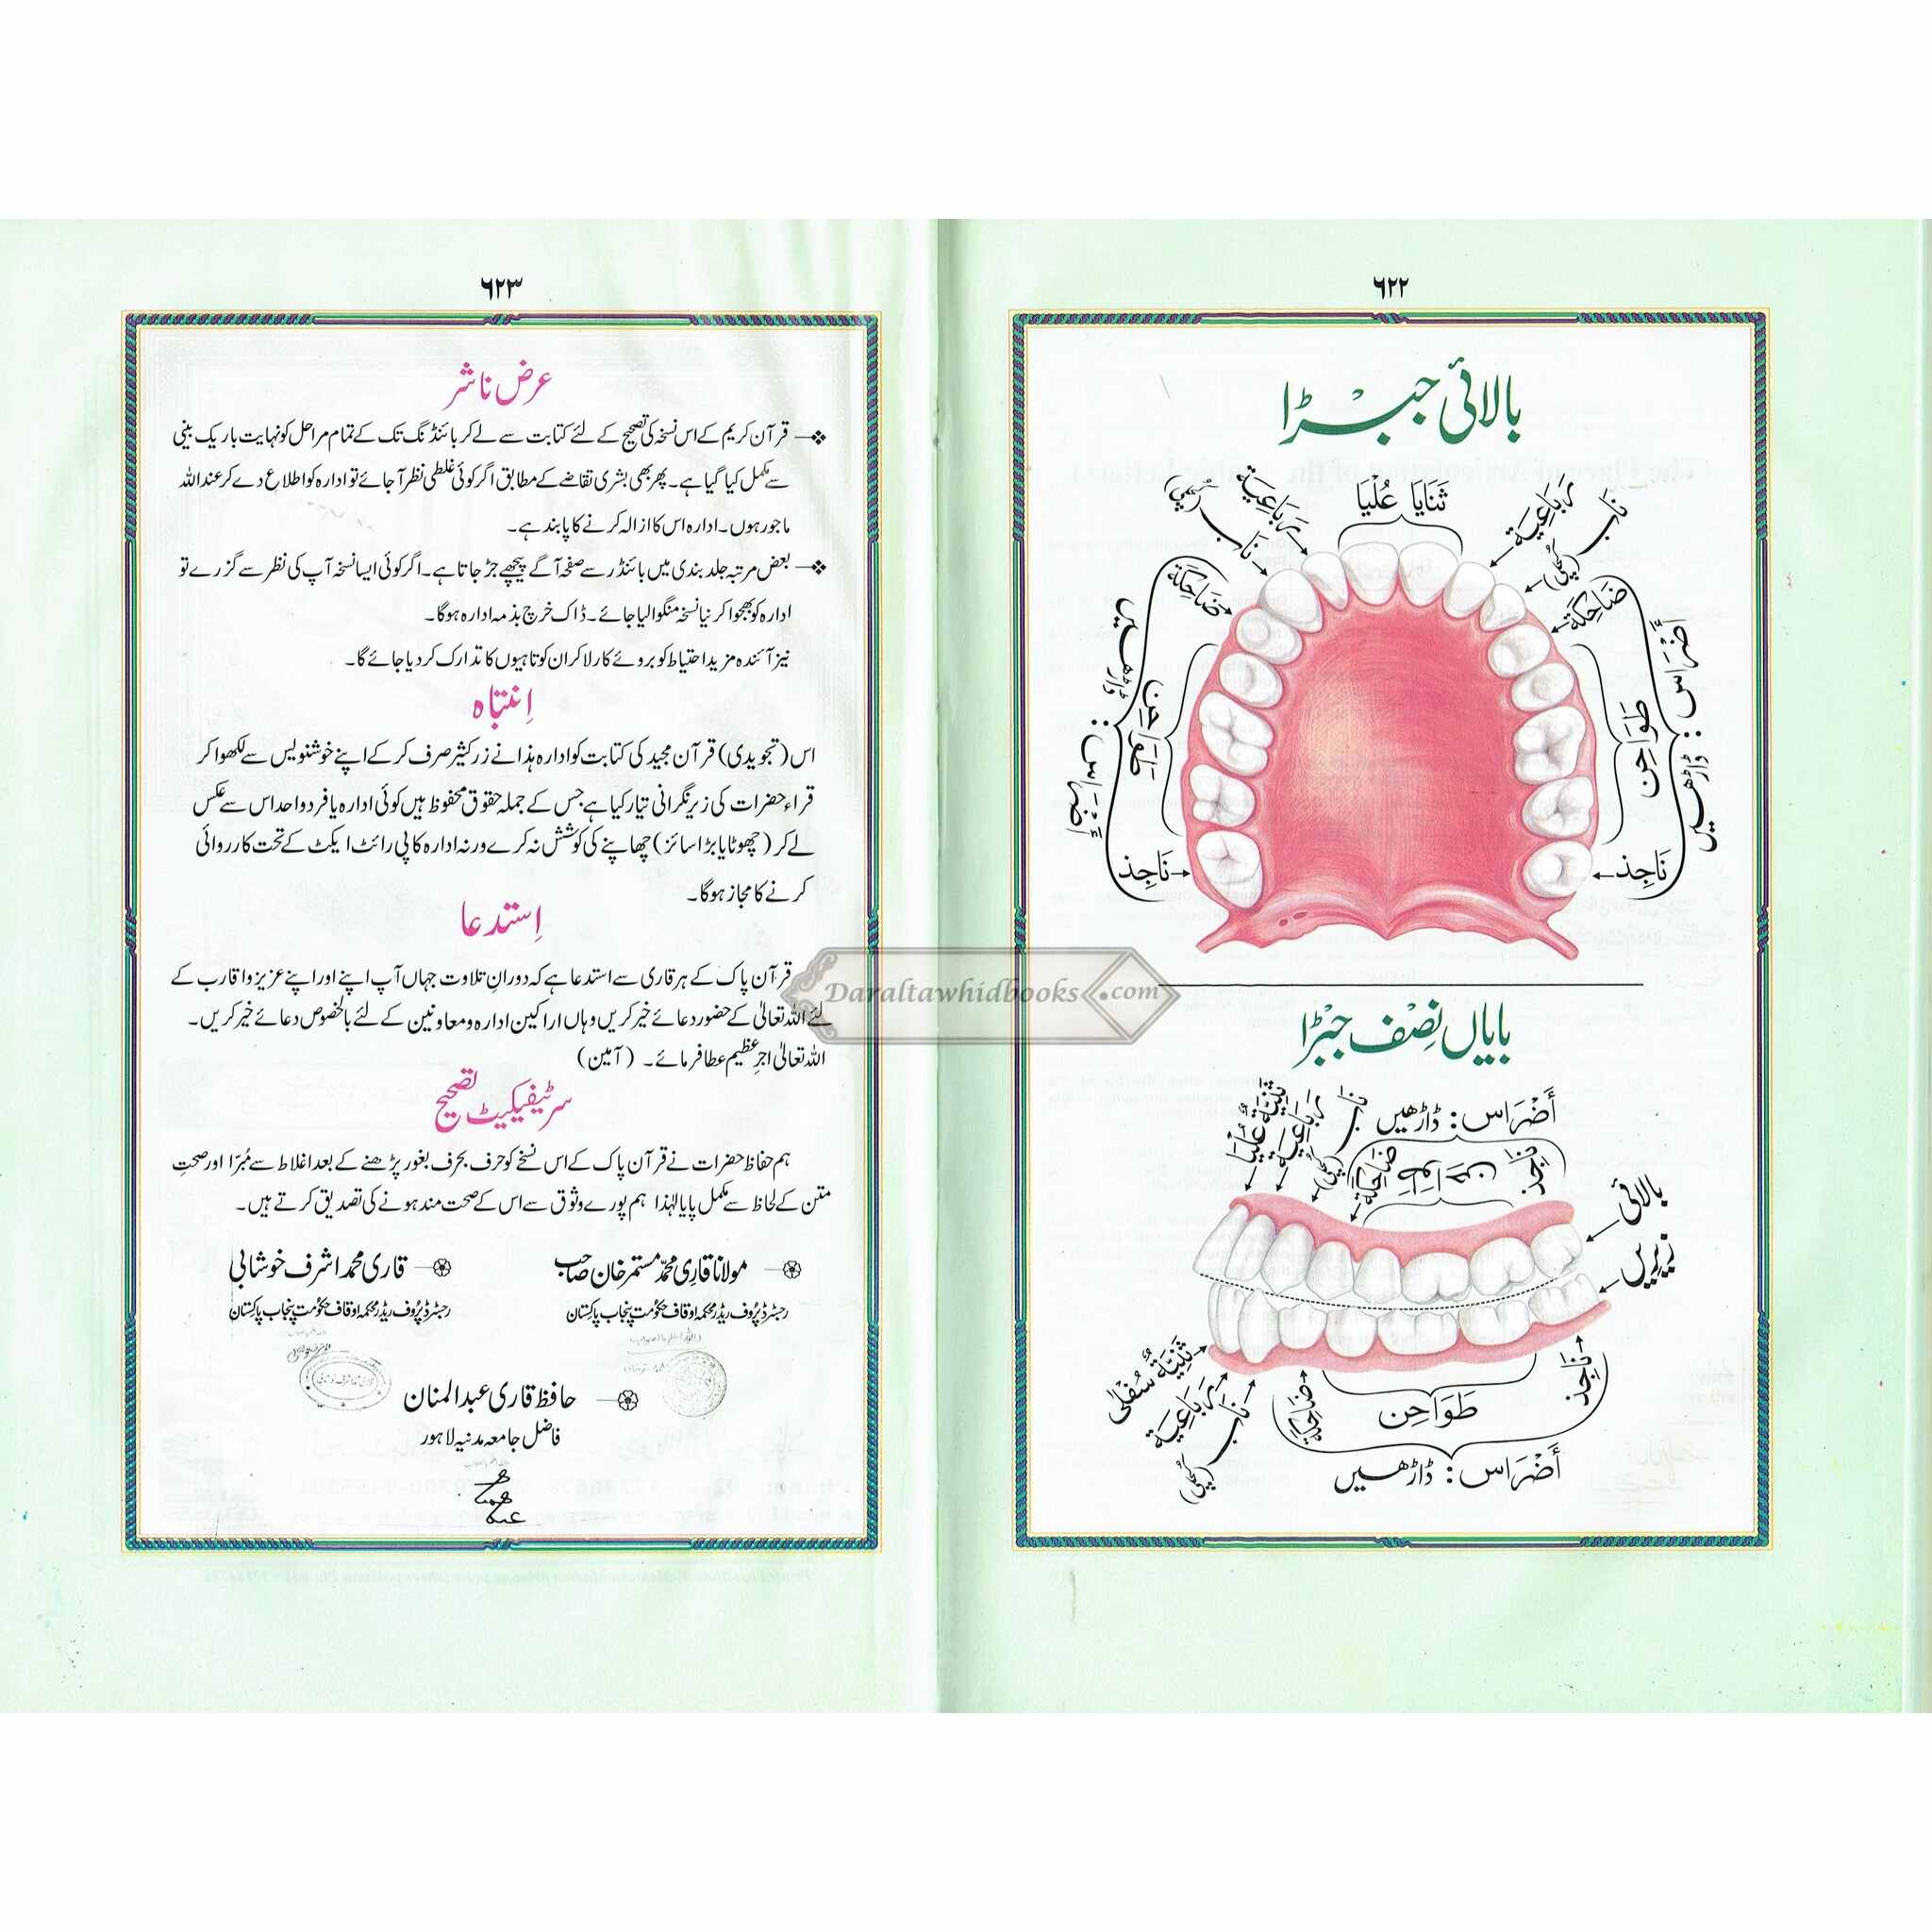 ٦٢٢
بالائی جبڑا
ثَنَایَا عُلْیَا
رَبَاعِیَة
رَبَاعِیَة
نَاب (کُچلی)
نَاب (کُچلی)
ضَاحِکَة
ضَاحِکَة
طَوَاحِن
طَوَاحِن
أَضْرَاس: ڈاڑھیں
أَضْرَاس: ڈاڑھیں
نَاجِذ
نَاجِذ
بایاں نِصْف جَبْڑا
أَضْرَاس: ڈاڑھیں
ثَنِیَّة عُلْیَا
رَبَاعِیَة
نَاب (کُچلی)
ضَاحِکَة
طَوَاحِن
نَاجِذ
بالائی
زیریں
ثَنِیَّة سُفْلٰی
رَبَاعِیَة
نَاب (کُچلی)
ضَاحِکَة
طَوَاحِن
نَاجِذ
أَضْرَاس: ڈاڑھیں
٦٢٣
عرض ناشر
قرآن کریم کے اس نسخہ کی تصحیح کے لئے کتابت سے لے کر بائنڈنگ تک کے تمام مراحل کو نہایت باریک بینی
سے مکمل کیا گیا ہے۔ پھر بھی بشری تقاضے کے مطابق اگر کوئی غلطی نظر آ جائے تو ادارہ کو اطلاع دے کر عنداللہ
ماجور ہوں۔ ادارہ اس کا ازالہ کرنے کا پابند ہے۔
بعض مرتبہ جلد بندی میں بائنڈر سے صفحہ آگے پیچھے جڑ جاتا ہے۔ اگر کوئی ایسا نسخہ آپ کی نظر سے گزرے تو
ادارہ کو بھجوا کر نیا نسخہ منگوا لیا جائے۔ ڈاک خرچ بذمہ ادارہ ہوگا۔
نیز آئندہ مزید احتیاط کو بروئے کار لا کر ان کوتاہیوں کا تدارک کر دیا جائے گا۔
اِنتباہ
اس (تجویدی) قرآن مجید کی کتابت کو ادارہ ہذا نے زرکثیر صرف کر کے اپنے خوشنویس سے لکھوا کر
قراء حضرات کی زیر نگرانی تیار کیا ہے جس کے جملہ حقوق محفوظ ہیں کوئی ادارہ یا فرد واحد اس سے عکس
لے کر (چھوٹا یا بڑا سائز) چھاپنے کی کوشش نہ کرے ورنہ ادارہ کاپی رائٹ ایکٹ کے تحت کارروائی
کرنے کا مجاز ہوگا۔
اِستدعا
قرآن پاک کے ہر قاری سے استدعا ہے کہ دوران تلاوت جہاں آپ اپنے اور اپنے عزیز و اقارب کے
لئے اللہ تعالیٰ کے حضور دعائے خیر کریں وہاں اراکین ادارہ و معاونین کے لئے بالخصوص دعائے خیر کریں۔
اللہ تعالیٰ اجرِ عظیم عطا فرمائے۔ (آمین)
سرٹیفیکیٹ تصحیح
ہم حفاظ حضرات نے قرآن پاک کے اس نسخے کو حرف بحرف بغور پڑھنے کے بعد اغلاط سے مُبرّا اور صحتِ
متن کے لحاظ سے مکمل پایا لہٰذا ہم پورے وثوق سے اس کے صحت مند ہونے کی تصدیق کرتے ہیں۔
مولانا قاری محمد مستمر خان صاحب
رجسٹرڈ پروف ریڈر محکمہ اوقاف حکومت پنجاب پاکستان
قاری محمد اشرف خوشابی
رجسٹرڈ پروف ریڈر محکمہ اوقاف حکومت پنجاب پاکستان
حافظ قاری عبدالمنان
فاضل جامعہ مدنیہ لاہور
Daraltawhidbooks.com